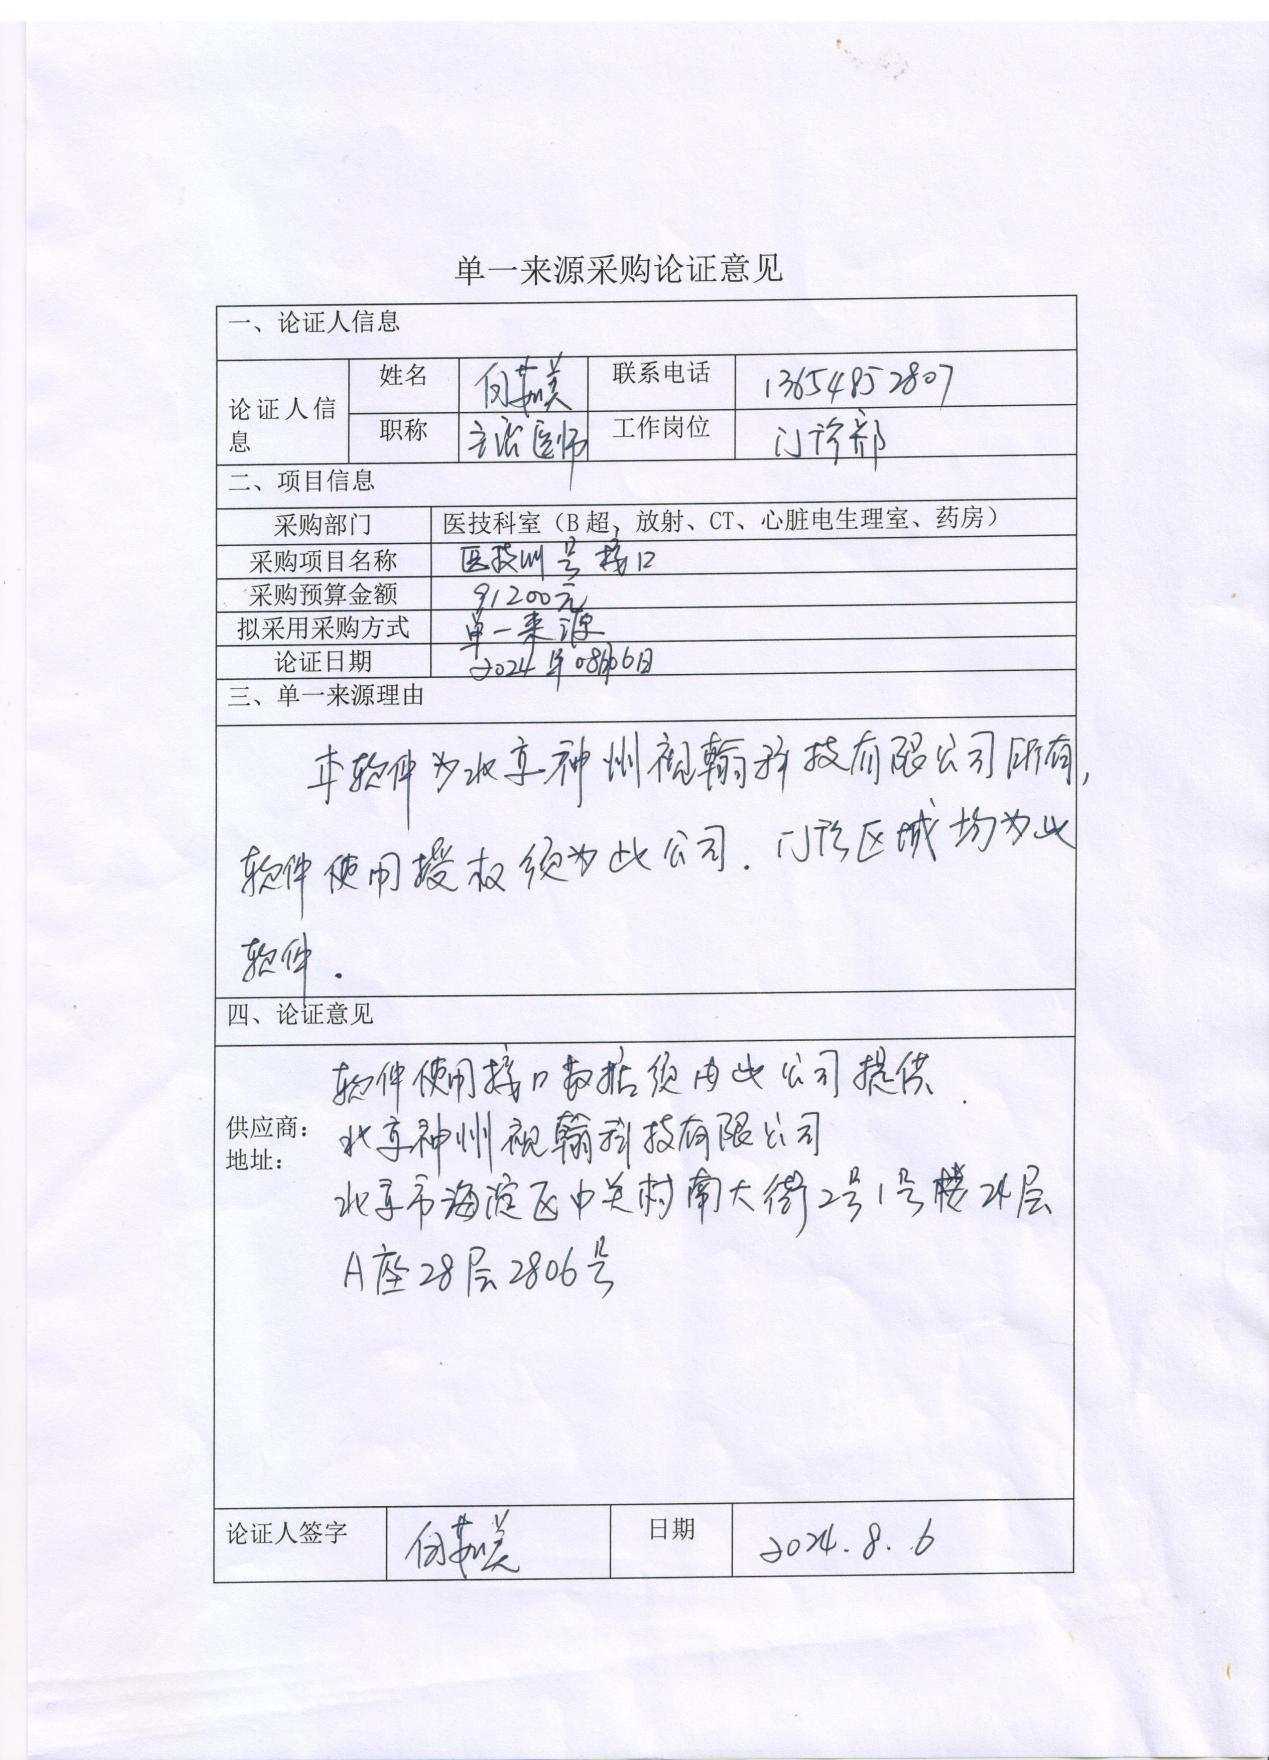 单一来源采购论证意见
一、论证人信息
论证人信息
姓名 向茹美 联系电话 13654852807
职称 主治医师 工作岗位 门诊部
二、项目信息
采购部门 医技科室（B超、放射、CT、心脏电生理室、药房）
采购项目名称 医技叫号接口
采购预算金额 91200元
拟采用采购方式 单一来源
论证日期 2024年08月06日
三、单一来源理由
本软件为北京神州视翰科技有限公司所有，
软件使用授权须为此公司．门诊区域均为此
软件．
四、论证意见
软件使用接口数据须由此公司提供．
供应商： 北京神州视翰科技有限公司
地址： 北京市海淀区中关村南大街2号1号楼24层
A座28层2806号
论证人签字 向茹美 日期 2024.8.6